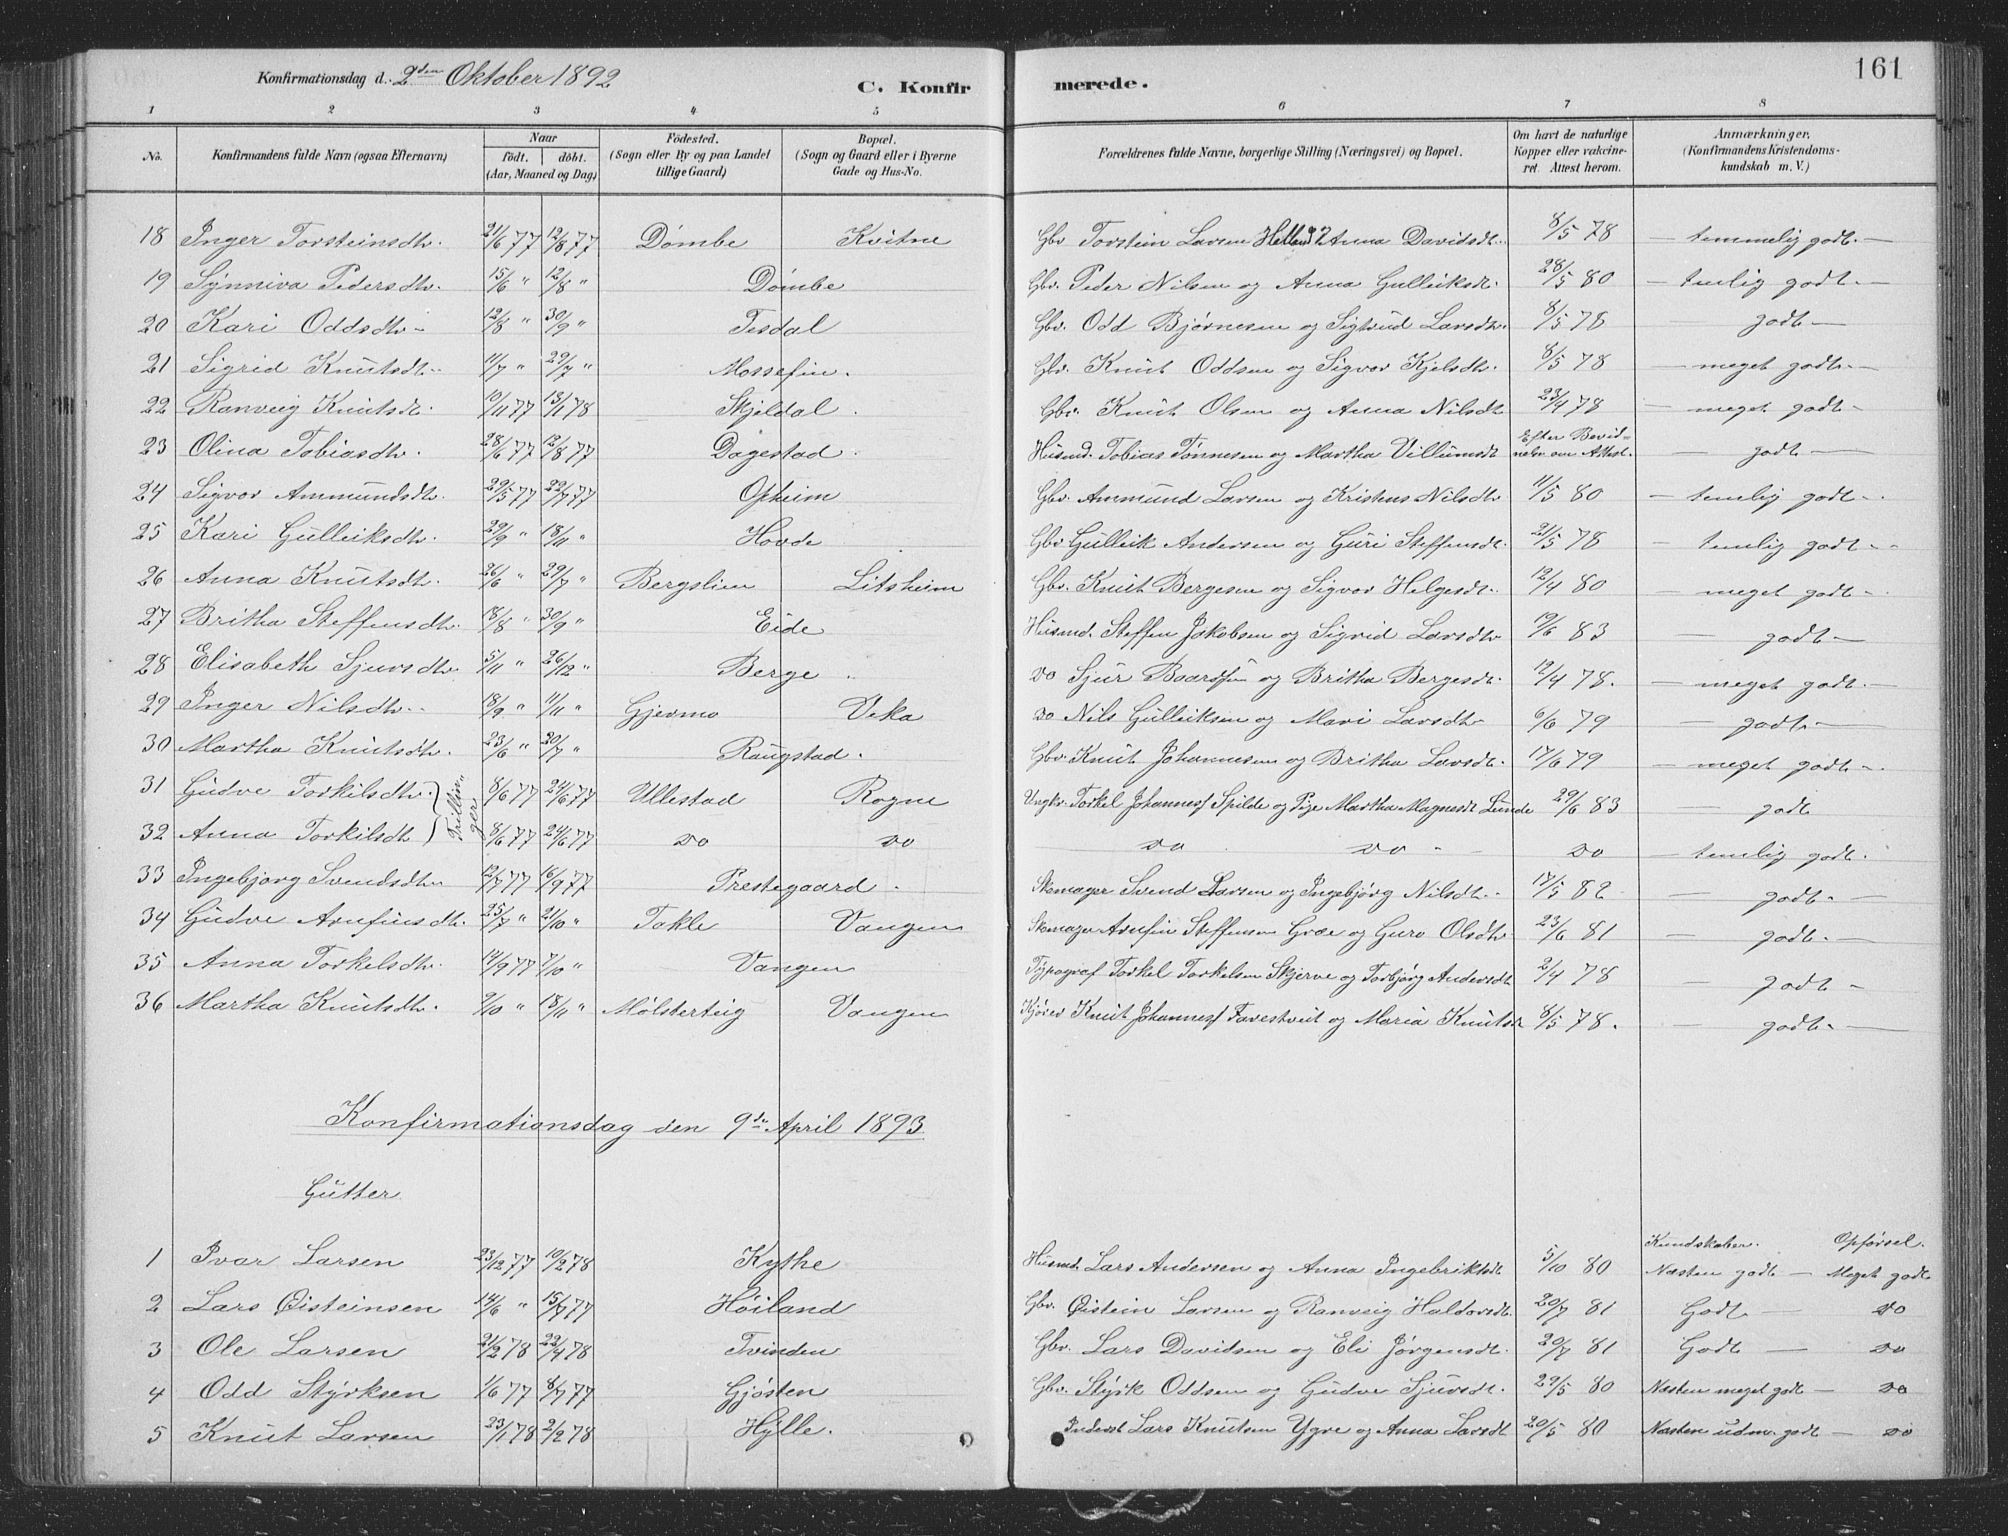 161
Konfirmationsdag d. 2den Oktober 1892 C. Konfirmerede.
1 2 3 4 5 6 7 8
No. Konfirmandens fulde Navn (ogsaa Efternavn) Naar født. døbt. (Aar, Maaned og Dag) Födested. (Sogn eller By og paa Landet tillige Gaard) Bopæl. (Sogn og Gaard eller i Byerne Gade og Hus-No. Forældrenes fulde Navne, borgerlige Stilling (Næringsvei) og Bopæl. Om havt de naturlige Kopper eller vakcineret. Attest herom. Anmærkninger. (Konfirmandens Kristendomskundskab m. V.)
18 Inger Torsteinsdtr. 21/6 77 12/8 77 Dømbe Kvitne Gbr Torstein Larsen Helland? Anna Davidsdtr. 8/5 78 – temmelig godt. –
19 Synniva Pedersdtr. 15/6 " 12/8 " Dømbe Gbr. Peder Nilsen og Anna Gulleiksdt. 28/5 80 – temlig godt. –
20 Kari Oddsdtr. 12/8 " 30/9 " Tesdal Gbr. Odd Bjørnesen og Sigtrud Larsdtr. 8/5 78 – godt –
21 Sigrid Knutsdtr. 11/7 " 29/7 " Mossefin. Gbr. Knut Oddsen og Sigvor Kjelsdtr. 8/5 78 – meget godt. –
22 Ranveig Knutsdt. 10/11 77 13/1 78 Skjeldal. Gbr. Knut Olsen og Anna Nilsdtr 23/4 78 – meget godt –
23 Olina Tobiasdtr. 28/6 77 12/8 77 Dagestad. Husmd. Tobias Tønnesen og Martha Villumsdt Efter Bevidnelse om Attest. – godt –
24 Sigvor Ammundsdtr. 29/5 77 22/7 77 Opheim Gbr. Ammund Larsen og Kristens Nilsdtr 11/5 80 – temlig godt –
25 Kari Gulleiksdtr. 29/9 " 18/11 " Hovde Gbr Gulleik Andersen og Guri Steffensdt. 21/5 78 – temlig godt –
26 Anna Knutsdtr. 26/6 " 29/7 " Bergslien Litsheim Gbr. Knut Bergesen og Sigvor Helgesdt. 12/4 80 – meget godt –
27 Britha Steffensdtr. 18/8 " 30/9 " Eide Husmd. Steffen Jakobsen og Sigrid Larsdtr 19/6 83 – godt –
28 Elisabeth Sjursdtr. 5/11 " 26/12 " Berge. do Sjur Baardsen og Britha Bergesdt. 12/4 78. – meget godt. –
29 Inger Nilsdtr. 18/9 " 11/11 " Gjermo Veka do Nils Gulleiksen og Mari Larsdtr 6/6 79 – godt –
30 Martha Knutsdtr. 23/6 " 20/7 " Raugstad. Gbr Knut Johannesen og Britha Larsdt. 17/6 79 – meget godt –
31 Gudve Torkilsdtr. Trillinger 8/6 77 24/6 77 Ullestad Rogne Ungkr. Torkel Johannesf Spilde og Pige Martha Magnesdt Lunde 29/6 83 – godt
32 Anna Torkilsdtr 8/6 77 24/6 77 do do do do – do – temlig godt.
33 Ingebjørg Svendsdtr 12/7 77 16/9 77 Prestegaard. Skomager Svend Larsen og Ingebjørg Nilsdtr. 17/5 82 – godt. –
34 Gudve Arnfinsdt. 25/7 " 21/10 " Takle Vangen Skomager Arnfin Steffensen Græe og Guro Olsdtr. 23/6 81 – godt. –
35 Anna Torkelsdtr. 14/9 77 7/10 " Vangen Typograf Torkel Torkelsen Skjerve og Torbjørg Andersdt 2/4 78 – godt –
36 Martha Knutsdtr. 9/10 " 18/11 " Mølsterteig Vangen Kjører Knut Johannesf Favestveit og Maria Knutsdr 8/5 78. – godt. –
Konfirmationsdag den 9de April 1893.
Gutter
Kundskaber. Opførsel.
1 Ivar Larsen 23/12 77 10/2 78 Kythe Husmd. Lars Andersen og Anna Ingebriktsdt 5/10 80 Næsten godt – Meget godt
2 Lars Øisteinsen 14/6 " 15/7 77 Høiland Gbr. Øistein Larsen og Ranveig Haldorsdt. 20/7 81 Godt – do
3 Ole Larsen 21/2 78 22/4 78 Tvinden Gbr. Lars Davidsen og Eli Jørgensdt. 20/7 81 Godt – do
4 Odd Styrksen 1/6 77 8/7 77 Gjøsten Gbr. Styrk Oddsen og Gudve Sjursdt. 29/5 80 Næsten meget godt – do
5 Knut Larsen 23/1 78 2/2 78 Hylle. Inderst Lars Knutsen Ygre og Anna Larsdt 20/5 80 Næsten udm. godt – do